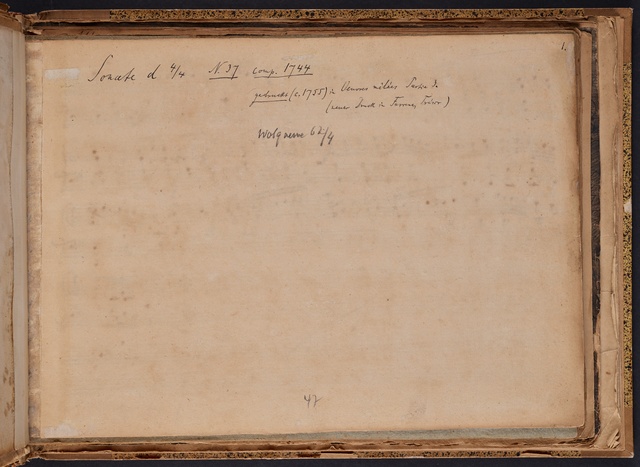 1.
Sonate d 4/4 N. 37 comp. 1744
gedruckt (c. 1755) in Oeuvres mêlées Partie 3.
(neuer Druck in Farrenc, Trésor)
Wotquenne 62/4
47